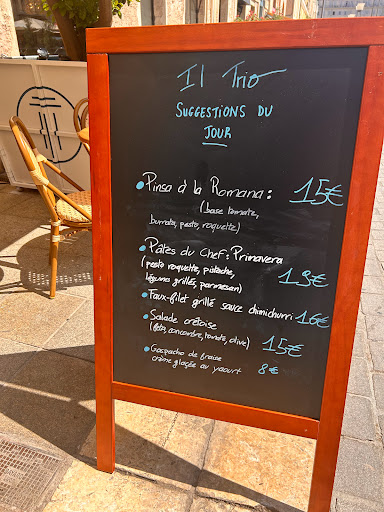 Il Trio
SUGGESTIONS DU
JOUR
Pinsa à la Romana : 15€
(base tomate,
burrata, pesto, roquette)
Pâtes du Chef : Primavera
(pesto roquette, pistache, 13€
légumes grillés, parmesan)
Faux-filet grillé sauce chimichurri 16€
Salade crétoise
(feta, concombre, tomate, olive) 15€
Gaspacho de fraise
crème glacée au yaourt 8€